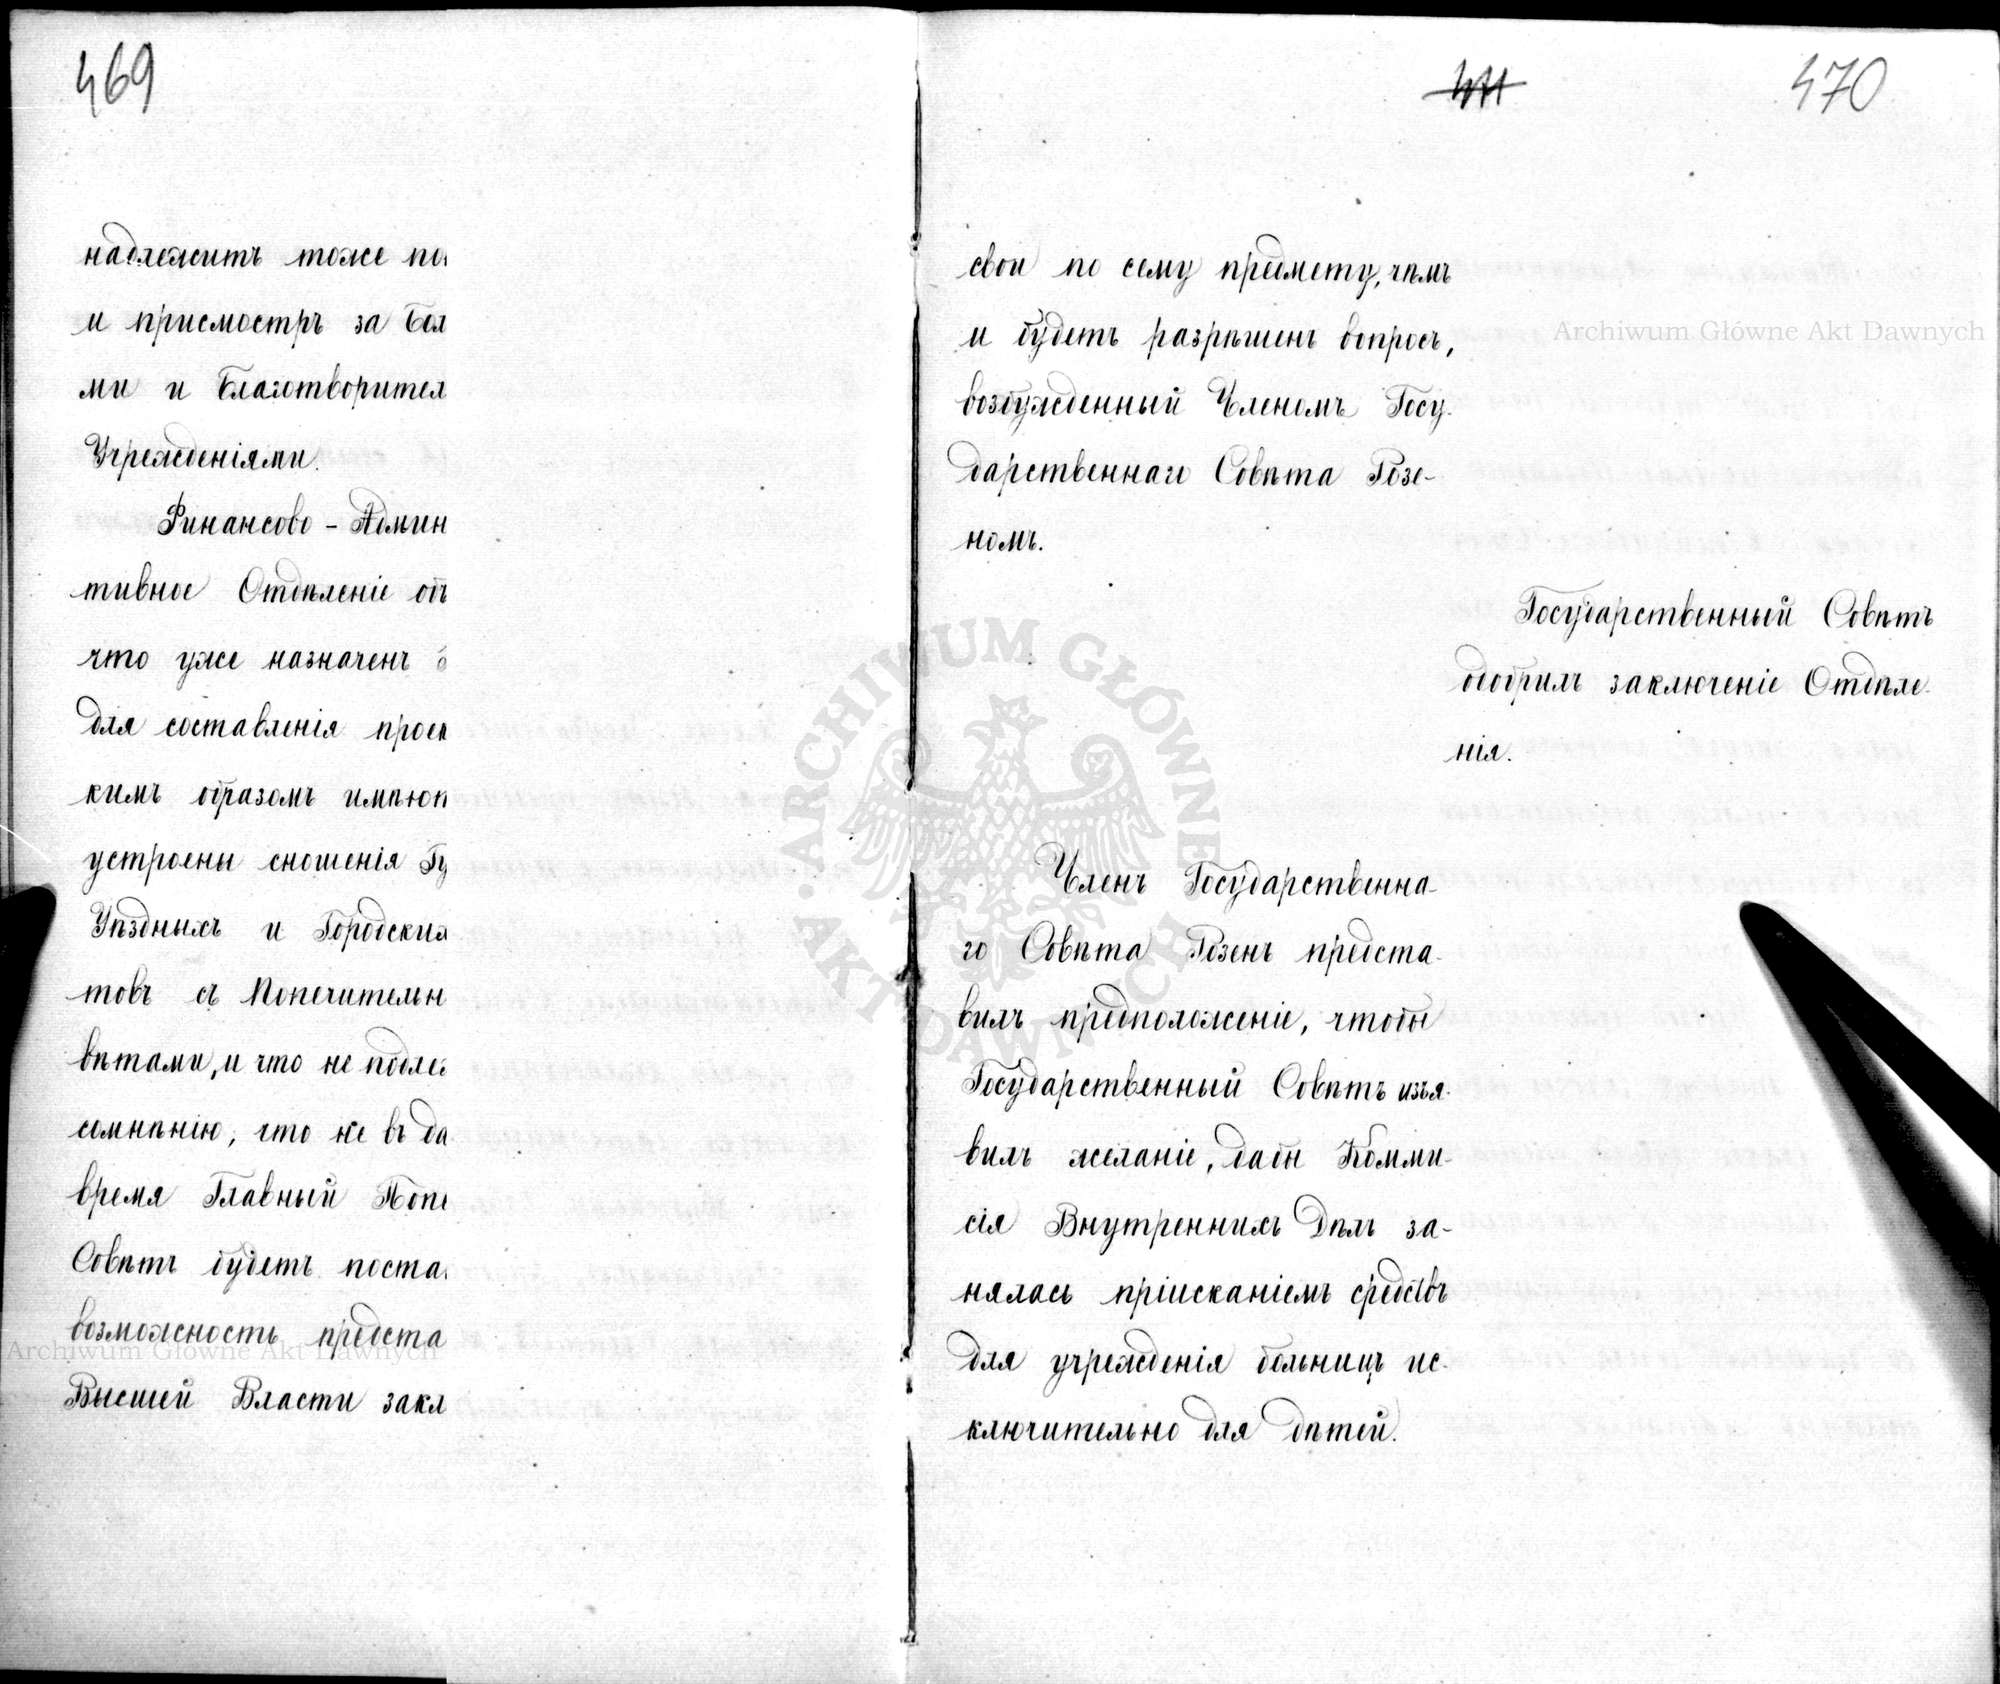 469
надлежитъ тоже по
и присмостръ за Бол
ми и Благотворител
Учрежденіями.
Финансово - Админ
тивное Отдѣленіе объ
что уже назначенъ
для составленія проек
кимъ образомъ имѣют
устроены сношенія Гу
Уѣздныхъ и Городских
товъ съ Попечительн
вѣтами, и что не подле
сомнѣнію, что не въ да
время Главный Попе
Совѣтъ будетъ поста
возможность предста
Высшей Власти закл
470
свои по сему предмету, чѣмъ
и будетъ разрѣшенъ вопросъ,
возбужденный Членомъ Госу-
дарственнаго Совѣта Розе-
номъ.
Государственный Совѣтъ
одобрилъ заключеніе Отдѣле-
нія.
Членъ Государственна-
го Совѣта Розенъ предста-
вилъ предположеніе, чтобы
Государственный Совѣтъ изъя-
вилъ желаніе, дабы Комми-
сія Внутреннихъ Дѣлъ за-
нялась пріисканіемъ средствъ
для учрежденія больницъ ис-
ключительно для дѣтей.
Archiwum Główne Akt Dawnych
Archiwum Główne Akt Dawnych
ARCHIWUM GŁÓWNE AKT DAWNYCH